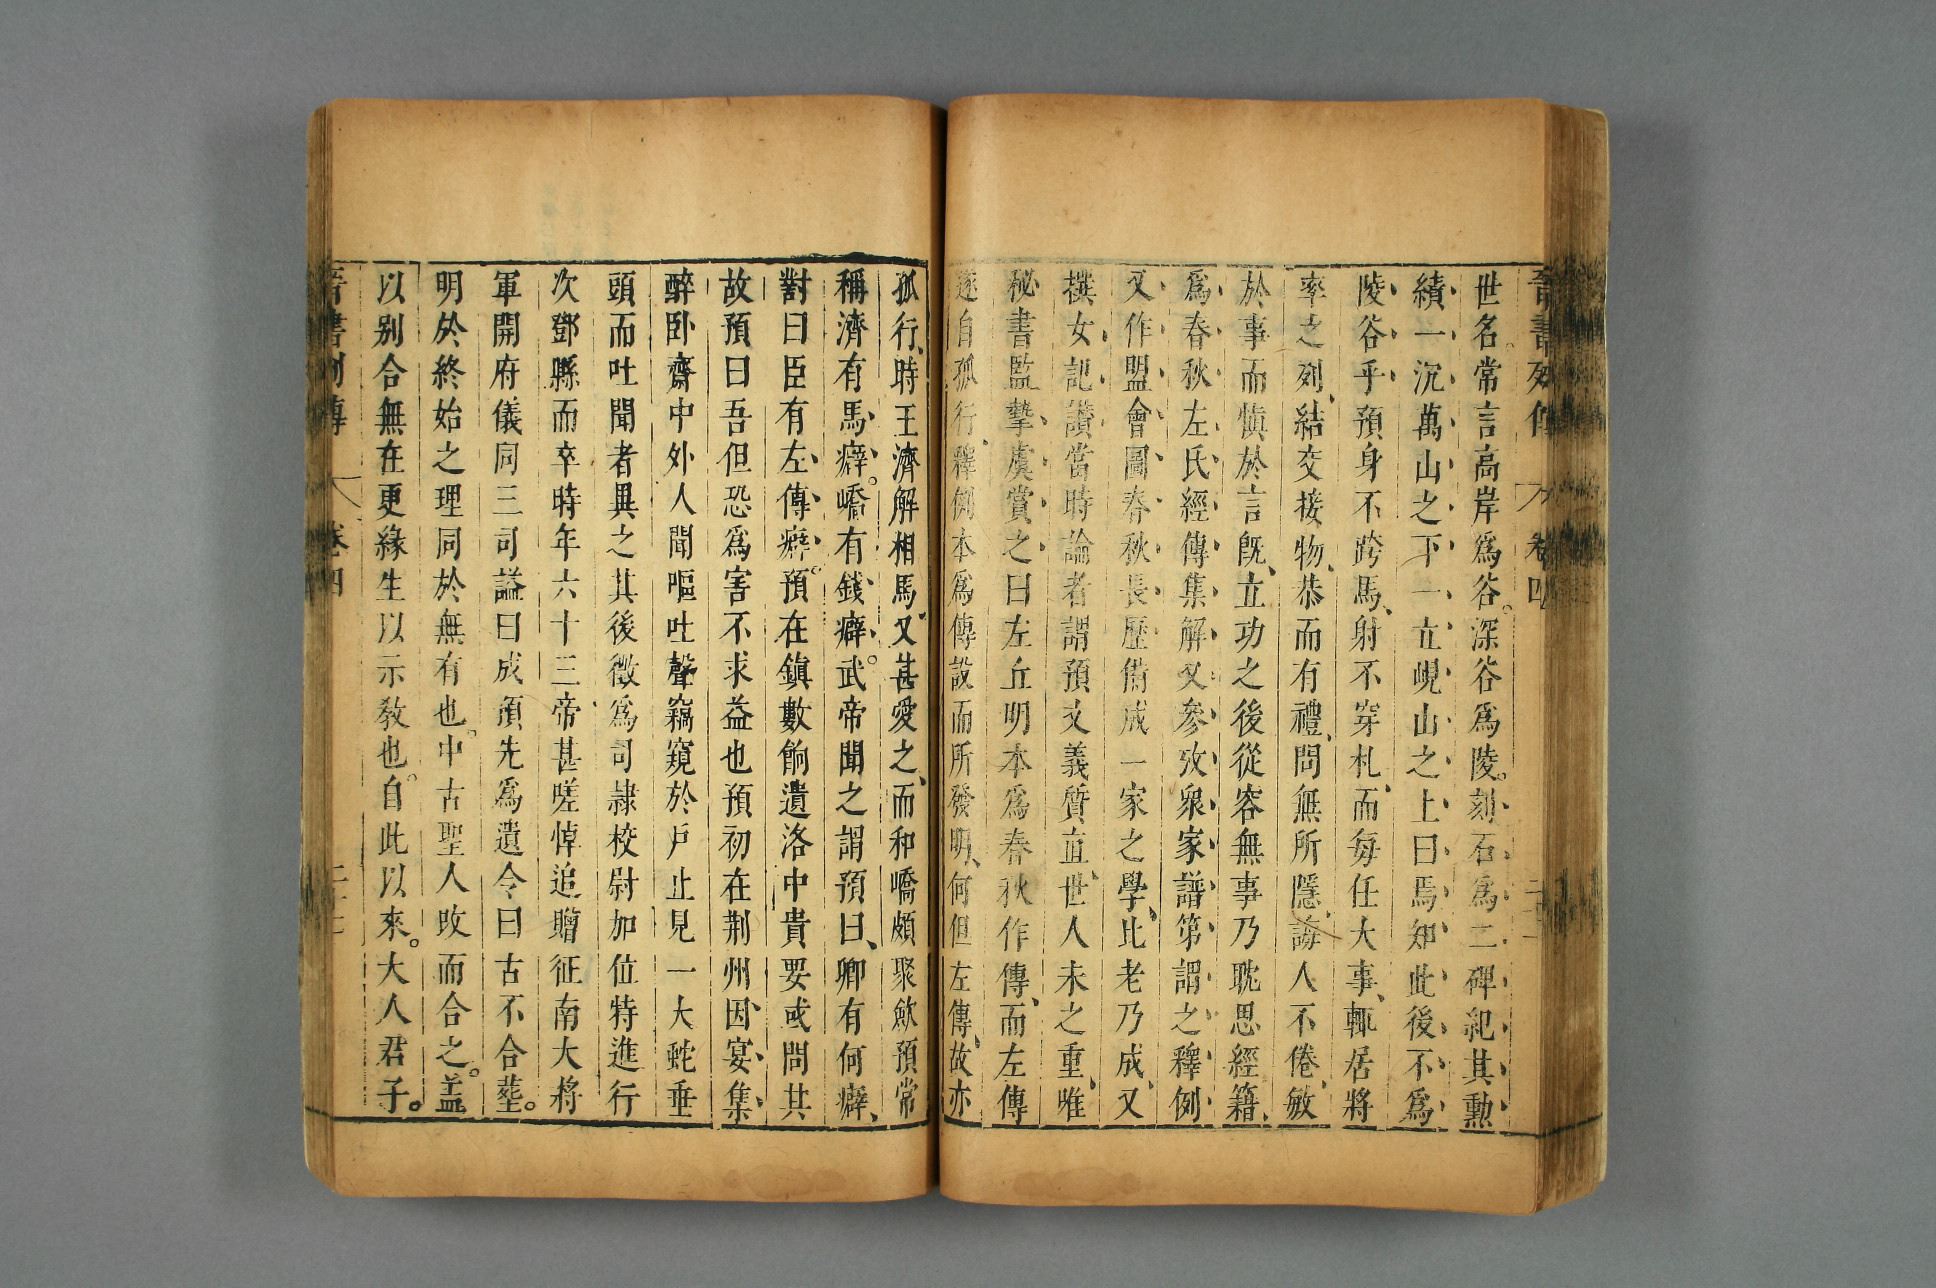 晉書列傳 卷四
世名常言高岸爲谷。深谷爲陵。刻石爲二碑紀其勳
績一沉萬山之下一立峴山之上曰焉知此後不爲
陵谷乎預身不跨馬、射不穿札、而每任大事、輒居將
率之列、結交接物、恭而有禮、問無所隱、誨人不倦、敏
於事而愼於言旣立功之後從容無事乃耽思經籍、
爲春秋左氏經傳集解又參攷衆家譜第謂之釋例
又作盟會圖春秋長歷備成一家之學、比老乃成、又
撰女記讚當時論者謂預文義質直、世人未之重、唯
秘書監摯虞賞之曰左丘明本爲春秋作傳、而左傳
遂自孤行、釋例本爲傳設而所發明、何但左傳、故亦
孤行、時王濟解相馬、又甚愛之、而和嶠頗聚斂預常
稱濟有馬癖。嶠有錢癖。武帝聞之謂預曰、卿有何癖、
對曰臣有左傳癖。預在鎭數餉遺洛中貴要或問其
故預曰吾但恐爲害不求益也預初在荆州因宴集、
醉卧齋中外人聞嘔吐聲竊窺於戸止見一大蛇垂
頭而吐聞者異之其後徵爲司隷校尉加位特進行
次鄧縣而卒時年六十三帝甚嗟悼追贈征南大將
軍開府儀同三司謚曰成預先爲遺令曰古不合塟。
明於終始之理同於無有也。中古聖人攺而合之。盖
以别合無在更緣生以示敎也。自此以來。大人君子。
晉書列傳 卷四